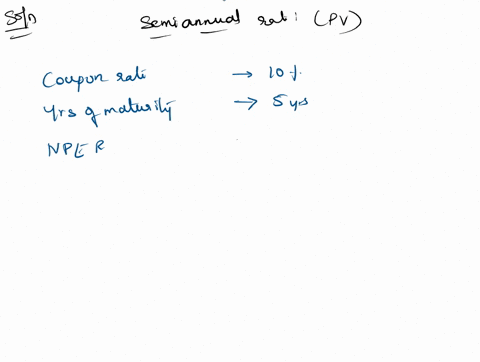 Soln Semi annual rate: (PV)
Coupon rate → 10%
Yrs of maturity → 5 yrs
NPER